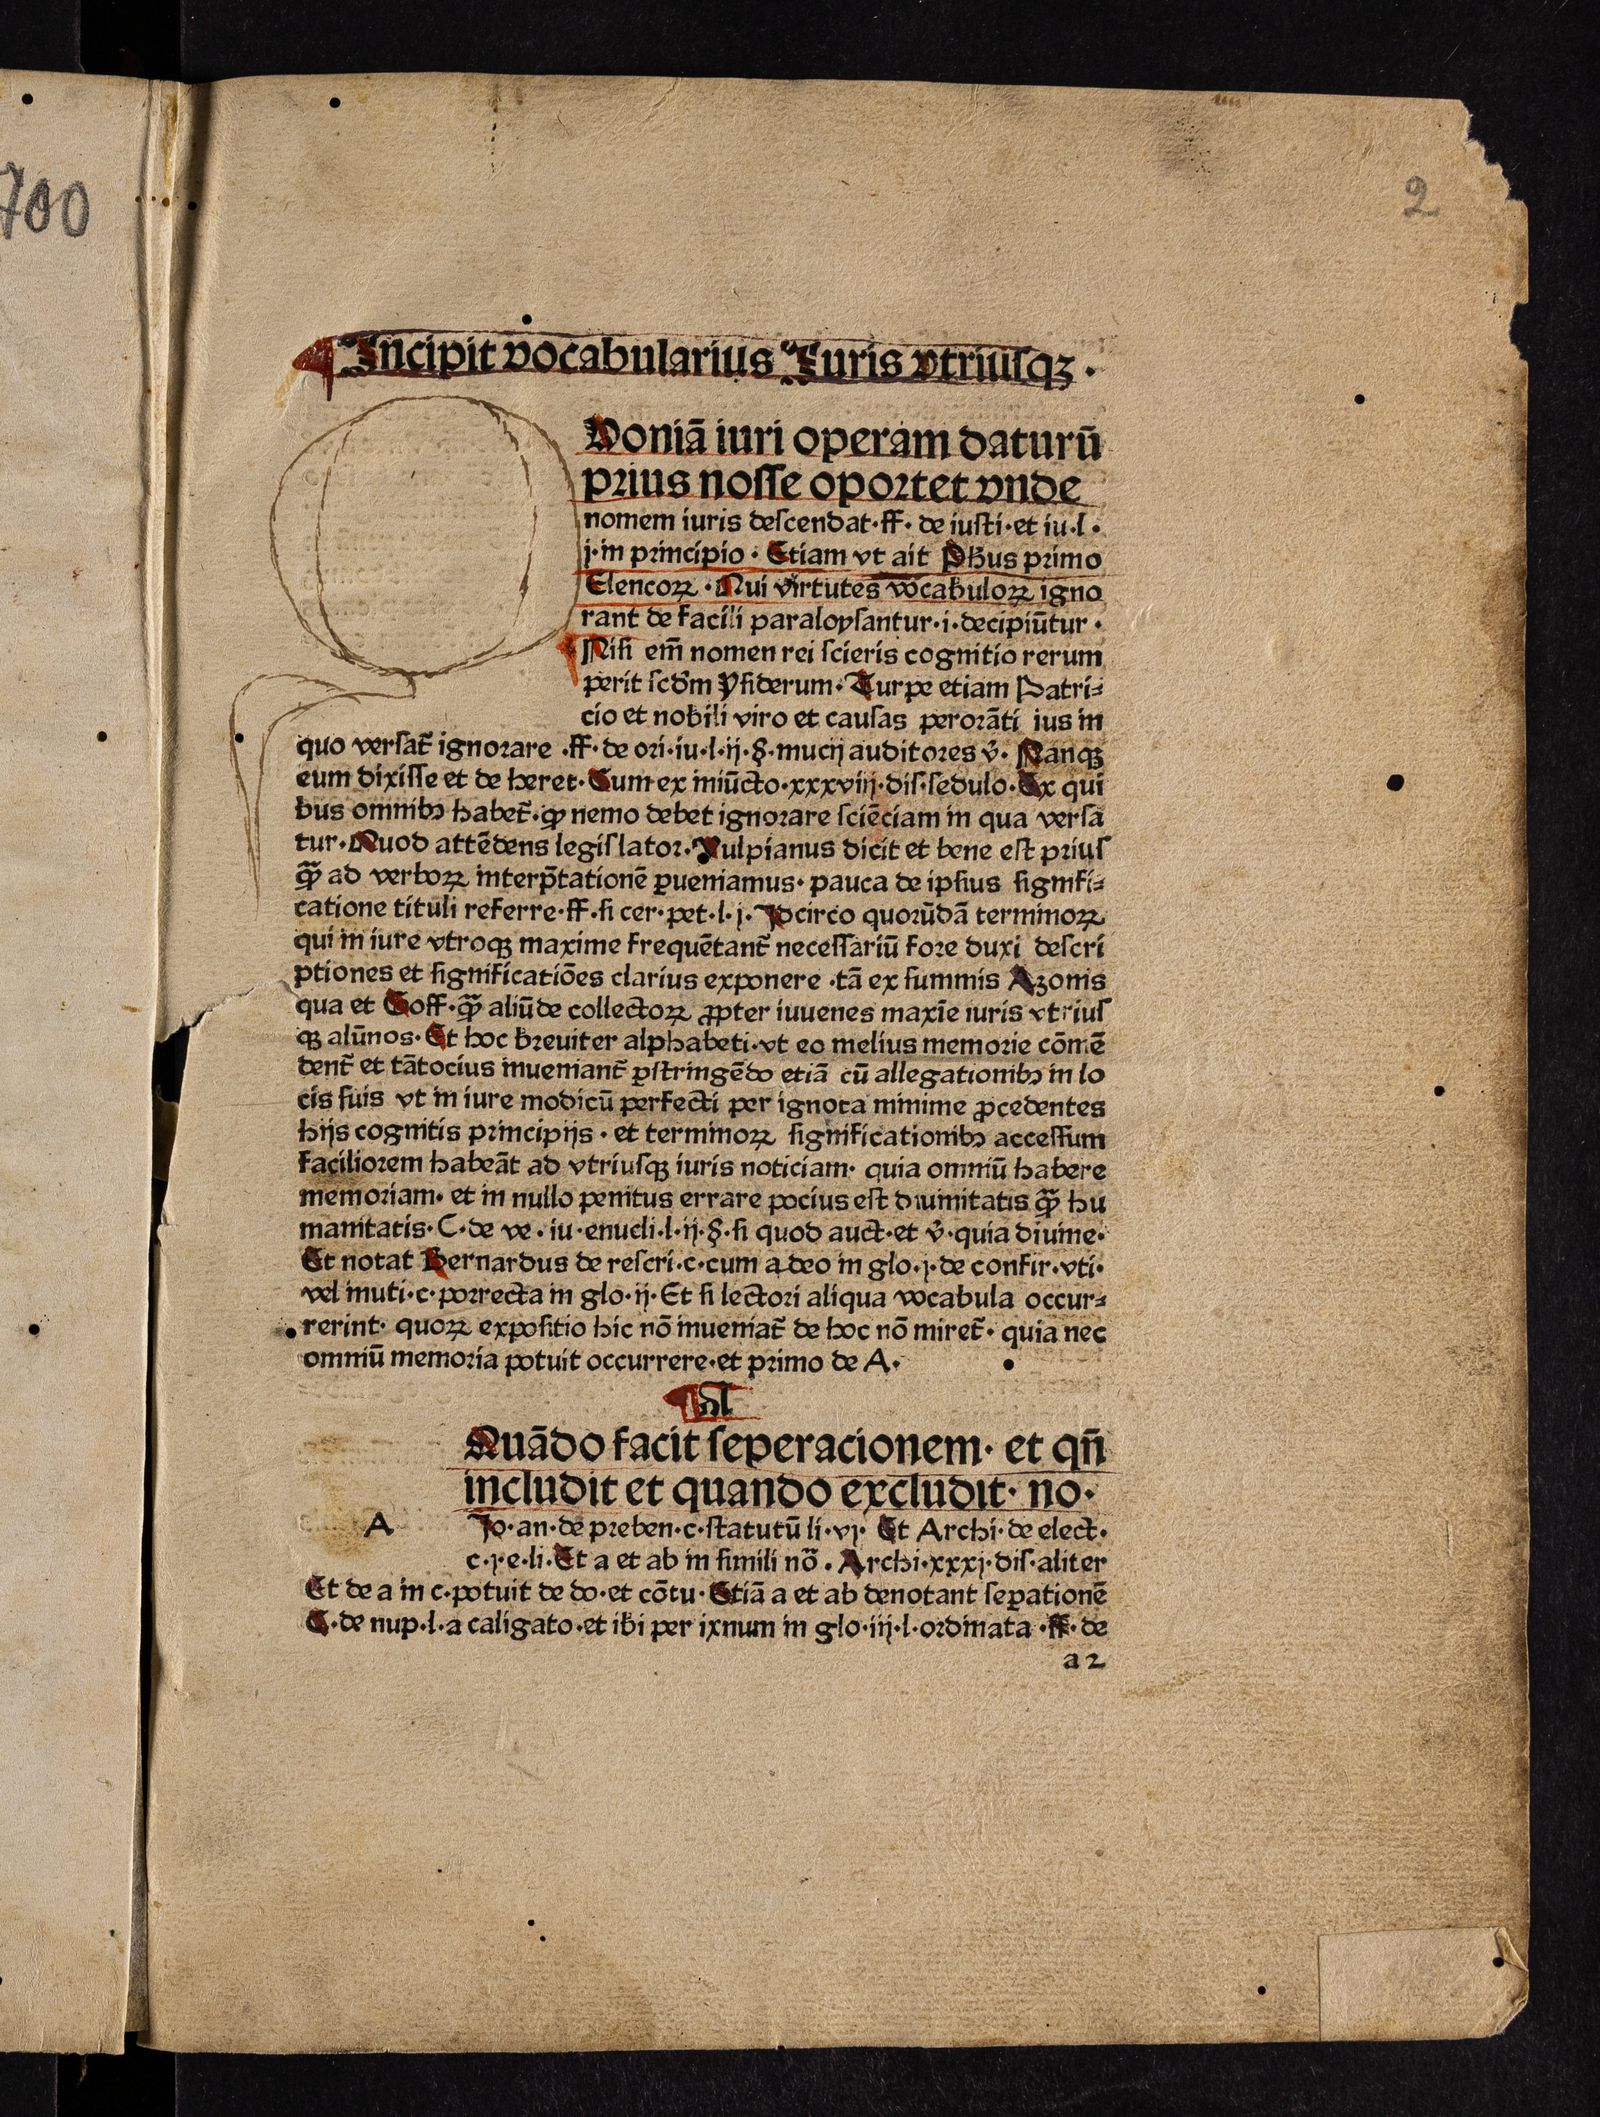 700
2
Incipit vocabularius Iuris vtriusqꝫ .
Q Uoniã iuri operam daturũ
prius nosse oportet vnde
nomem iuris descendat·ff· de iusti·et iu·l·
j·in principio · Etiam vt ait Pħus primo
Elencoꝝ · Qui virtutes vocabuloꝝ igno
rant de facili paraloysantur·i·decipiũtur ·
Nisi em̃ nomen rei scieris cognitio rerum
perit scd̃m ysiderum· Turpe etiam Patri⸗
cio et nobili viro et causas perorãti ius in
quo versat̃ ignorare ·ff· de ori·iu·l·ij·§·mucij auditores v̓· Nanqꝫ
eum dixisse et de heret· Cum ex iniũcto·xxxviij·dis·sedulo·Ex qui
bus omnibꝫ habet̃·ꝙ nemo debet ignorare sciẽciam in qua versa
tur·Quod attẽdens legislator·Vulpianus dicit et bene est prius
qꝫ̃ ad verboꝝ interp̃tationẽ ꝑueniamus· pauca de ipsius signifi⸗
catione tituli referre·ff·si cer·pet·l·j· Idcirco quorũdã terminoꝝ
qui in iure vtroqꝫ maxime frequẽtant̃ necessariũ fore duxi descri
ptiones et significatiões clarius exponere ·tã ex summis Azonis
qua et Goff·qꝫ̃ aliũde collectoꝝ ꝓpter iuuenes maxĩe iuris vtrius
qꝫ alũnos· Et hoc breuiter alphabeti·vt eo melius memorie cõmẽ
dent̃ et tãtocius inueniant̃ ꝑstringẽdo etiã cũ allegationibꝫ in lo
cis suis vt in iure modicũ perfecti per ignota minime ꝓcedentes
hijs cognitis principijs · et terminoꝝ significationibꝫ accessum
faciliorem habeãt ad vtriusqꝫ iuris noticiam· quia omniũ habere
memoriam· et in nullo penitus errare pocius est diuinitatis qꝫ̃ hu
manitatis· C·de ve·iu·enucli·l·ij·§·si quod auct·et v̓·quia diuine·
Et notat Bernardus de rescri·c·cum adeo in glo·j·de confir·vti·
vel inuti·c·porrecta in glo·ij· Et si lectori aliqua vocabula occur⸗
rerint· quoꝝ expositio hic nõ inueniat̃ de hoc nõ miret̃· quia nec
omniũ memoria potuit occurrere·et primo de A·
A
Quãdo facit seperacionem· et qñ
includit et quando excludit· no·
A Jo·an·de preben·c·statutũ li·vj· Et Archi·de elect·
c·j·e·li· Et a et ab in simili nõ· Archi·xxxj·dis·aliter
Et de a in c·potuit de do·et cõtu· Etiã a et ab denotant seꝑationẽ
C·de nup·l·a caligato·et ibi per ixnum in glo·iij·l·ordinata ·ff·de
a 2